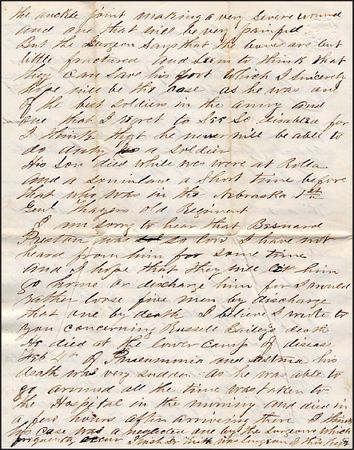 the ankle joint making a very severe wound
and one that will be very painful
But the Surgeon Says that the bones are but
little fractured and seem to think that
they can save his foot which I sincerely
hope will be the case as he was one
of the best soldiers in the army and
one that I regret to See So disabled for
I think that he never will be able to
do duty as a soldier
His Son died while we were at Rolla
and a Soninlaw a Short time before
that who was in the Nebraska 1st
Genl Thayers old Regiment
I am sorry to hear that
Preston was so low I have not
heard from him for some time
and I hope that they will let him
go home or discharge him for I would
rather loose five men by discharge
that one by death I believe I wrote to
you concerning Russell Baileys death
He died at the lower Camp of disease
Feb 4th of Pneaumonia and his
death was very sudden as he was able to
go around all the time was taken to
the Hospital in the morning and died in
a few hours after arriving there I think
the case was a neglected one by the Surgeon which
frequently occur I wish Dr was Surgeon of this Regt